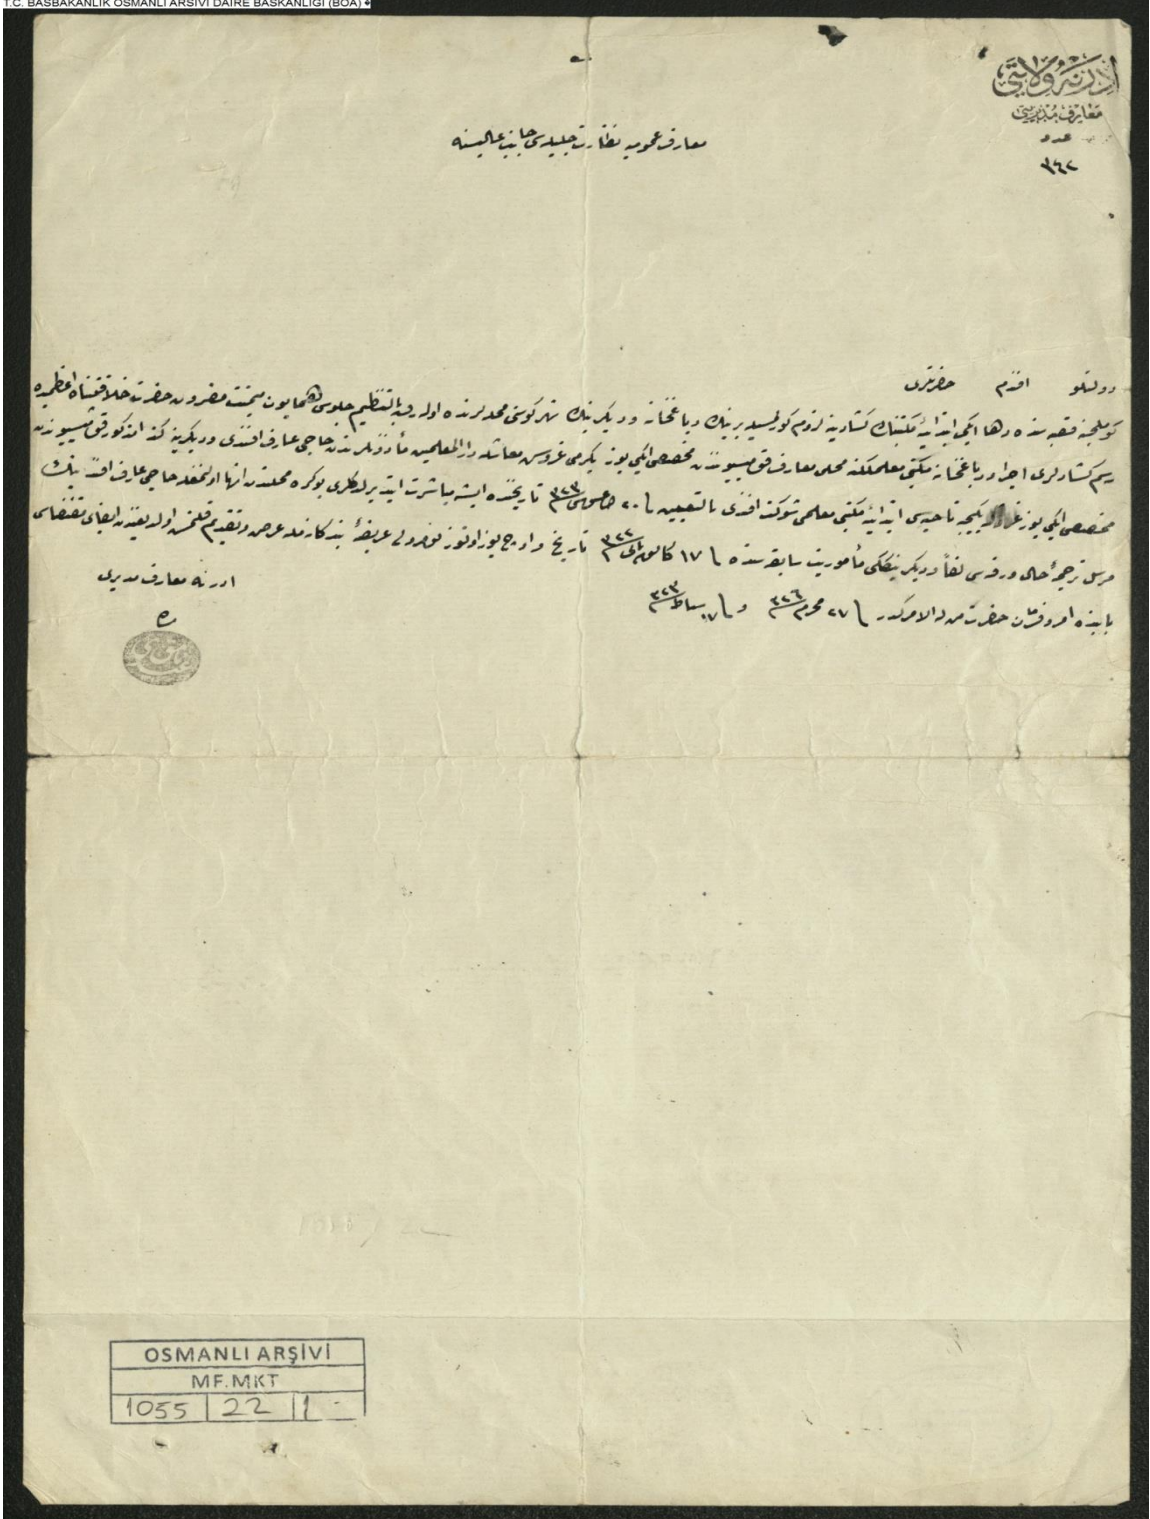 T.C. BAŞBAKANLIK OSMANLI ARŞİVİ DAİRE BAŞKANLIĞI (BOA)
ادرنه ولايتى
معارف مديريتى
عدد
٣٤٢
معارف عموميه نظارت جليله‌سى جانب عاليسنه
دولتلو افندم حضرتلرى
كوملجنه قصبه‌سنده دها ايكى ابتدائيه مكتبنك كشادينه لزوم كورلمسيله برينك دباغخانه و ديكرينك محللرنده اوله‌رق جلوس همايون ميمنت مقرون حضرت خلافتپناه اعظميده
رسم كشادلرى اجرا و دباغخانه مكتبى معلملكنه محلى معارف قوميسيونندن مخصص ايكى يوز يكرمى غروش معاشله دار المعلمين مأذونلرندن حاجى عارف افندى و ديكرينه كذا مذكور قوميسيوندن
مخصص ايكى يوز يكيجه ناحيه‌سى ابتدائيه مكتبى معلمى شوكت افندى بالتعيين ٢٠ ٣٢٣ تاريخنده ايشه مباشرت ايتديرلدكلرى بو كره محلندن انها اولنمغله حاجى عارف افندينك
مرسل ترجمهٔ حال ورقه‌سى لفاً و ديكرينككى مأموريت سابقه‌سنده ١٧ كانون ٣٢٢ تاريخ و اوچ يوز اوتوز نومرولى عريضهٔ بندكانمله عرض و تقديم قلنمش اولديغندن ايفاى مقتضاسى
بابنده امر و فرمان حضرت من له الامركدر ٢٧ محرم ٣٢٦ و ١٧ شباط ٣٢٣
ادرنه معارف مديرى
OSMANLI ARŞİVİ
MF.MKT
1055 22 1